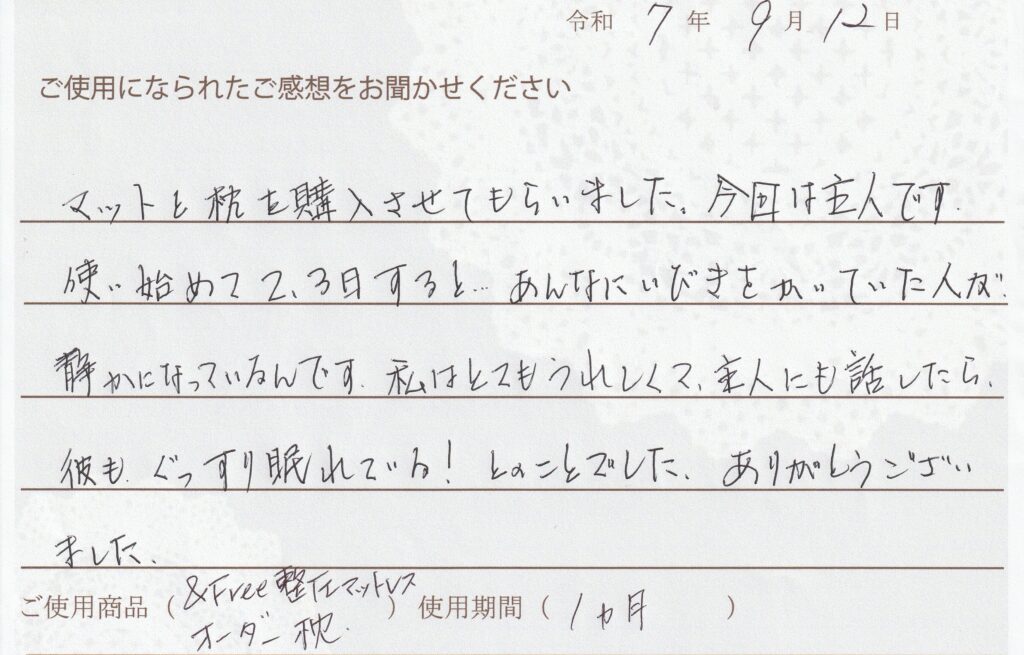 令和 7 年 9 月 12 日
ご使用になられたご感想をお聞かせください
マットと枕を購入させてもらいました。今回は主人です。
使い始めて2、3日すると…あんなにいびきをかいていた人が、
静かになっているんです。私はとてもうれしくて、主人にも話したら、
彼も、ぐっすり眠れている！とのことでした。ありがとうござい
ました。
ご使用商品（&Free整圧マットレス オーダー枕.）使用期間（1ヵ月）